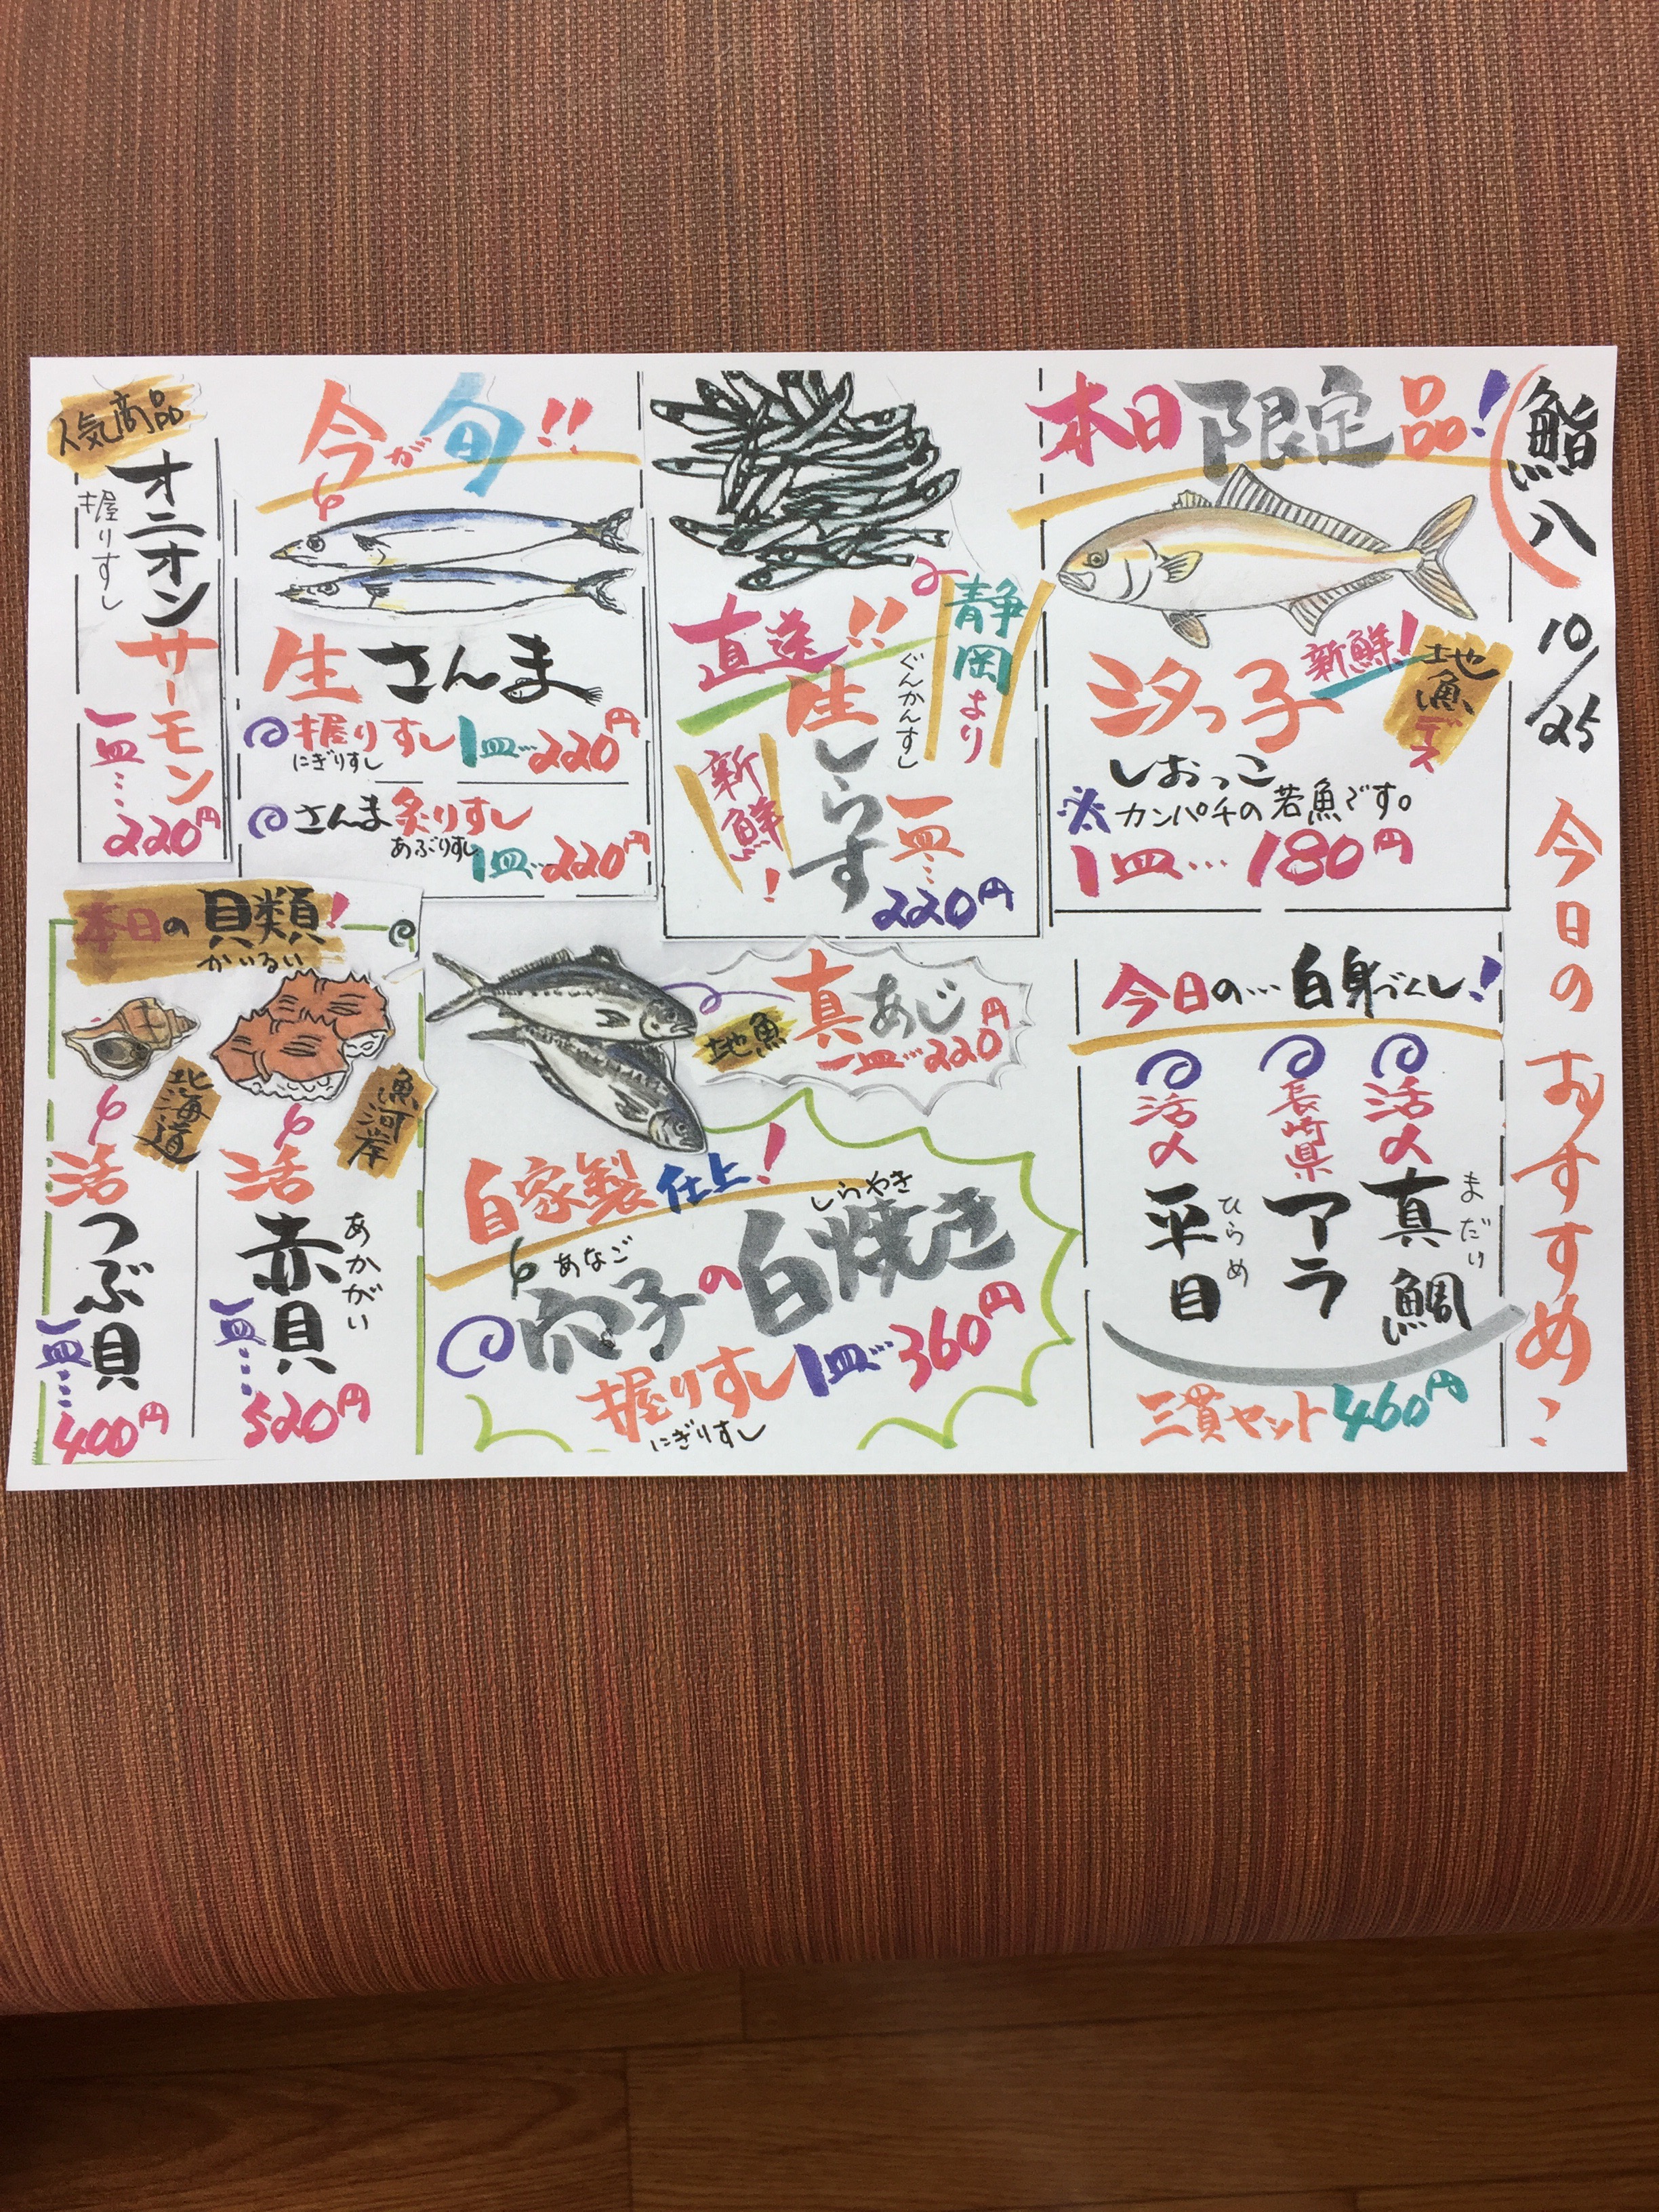 鮨八
10/25
今日のおすすめ:
本日限定品!
汐っ子
新鮮!
地魚デス
しおっこ
※カンパチの若魚です。
1皿…180円
静岡より
直送!!
ぐんかんすし
生しらす
新鮮!
一皿…
220円
今が旬!!
生さんま
握りすし 1皿…220円
にぎりすし
さんま炙りすし
あぶりすし
1皿…220円
人気商品
オニオンサーモン
握りすし
一皿…
220円
今日の…白身づくし!
活〆
真鯛
まだい
長崎県
アラ
活〆
平目
ひらめ
三貫セット460円
地魚
真あじ
一皿…220円
自家製仕上!
しらやき
あなご
穴子の白焼き
握りすし1皿…360円
にぎりすし
本日の貝類!
かいるい
魚河岸
活
赤貝
あかがい
一皿…
520円
北海道
活
つぶ貝
一皿…
400円